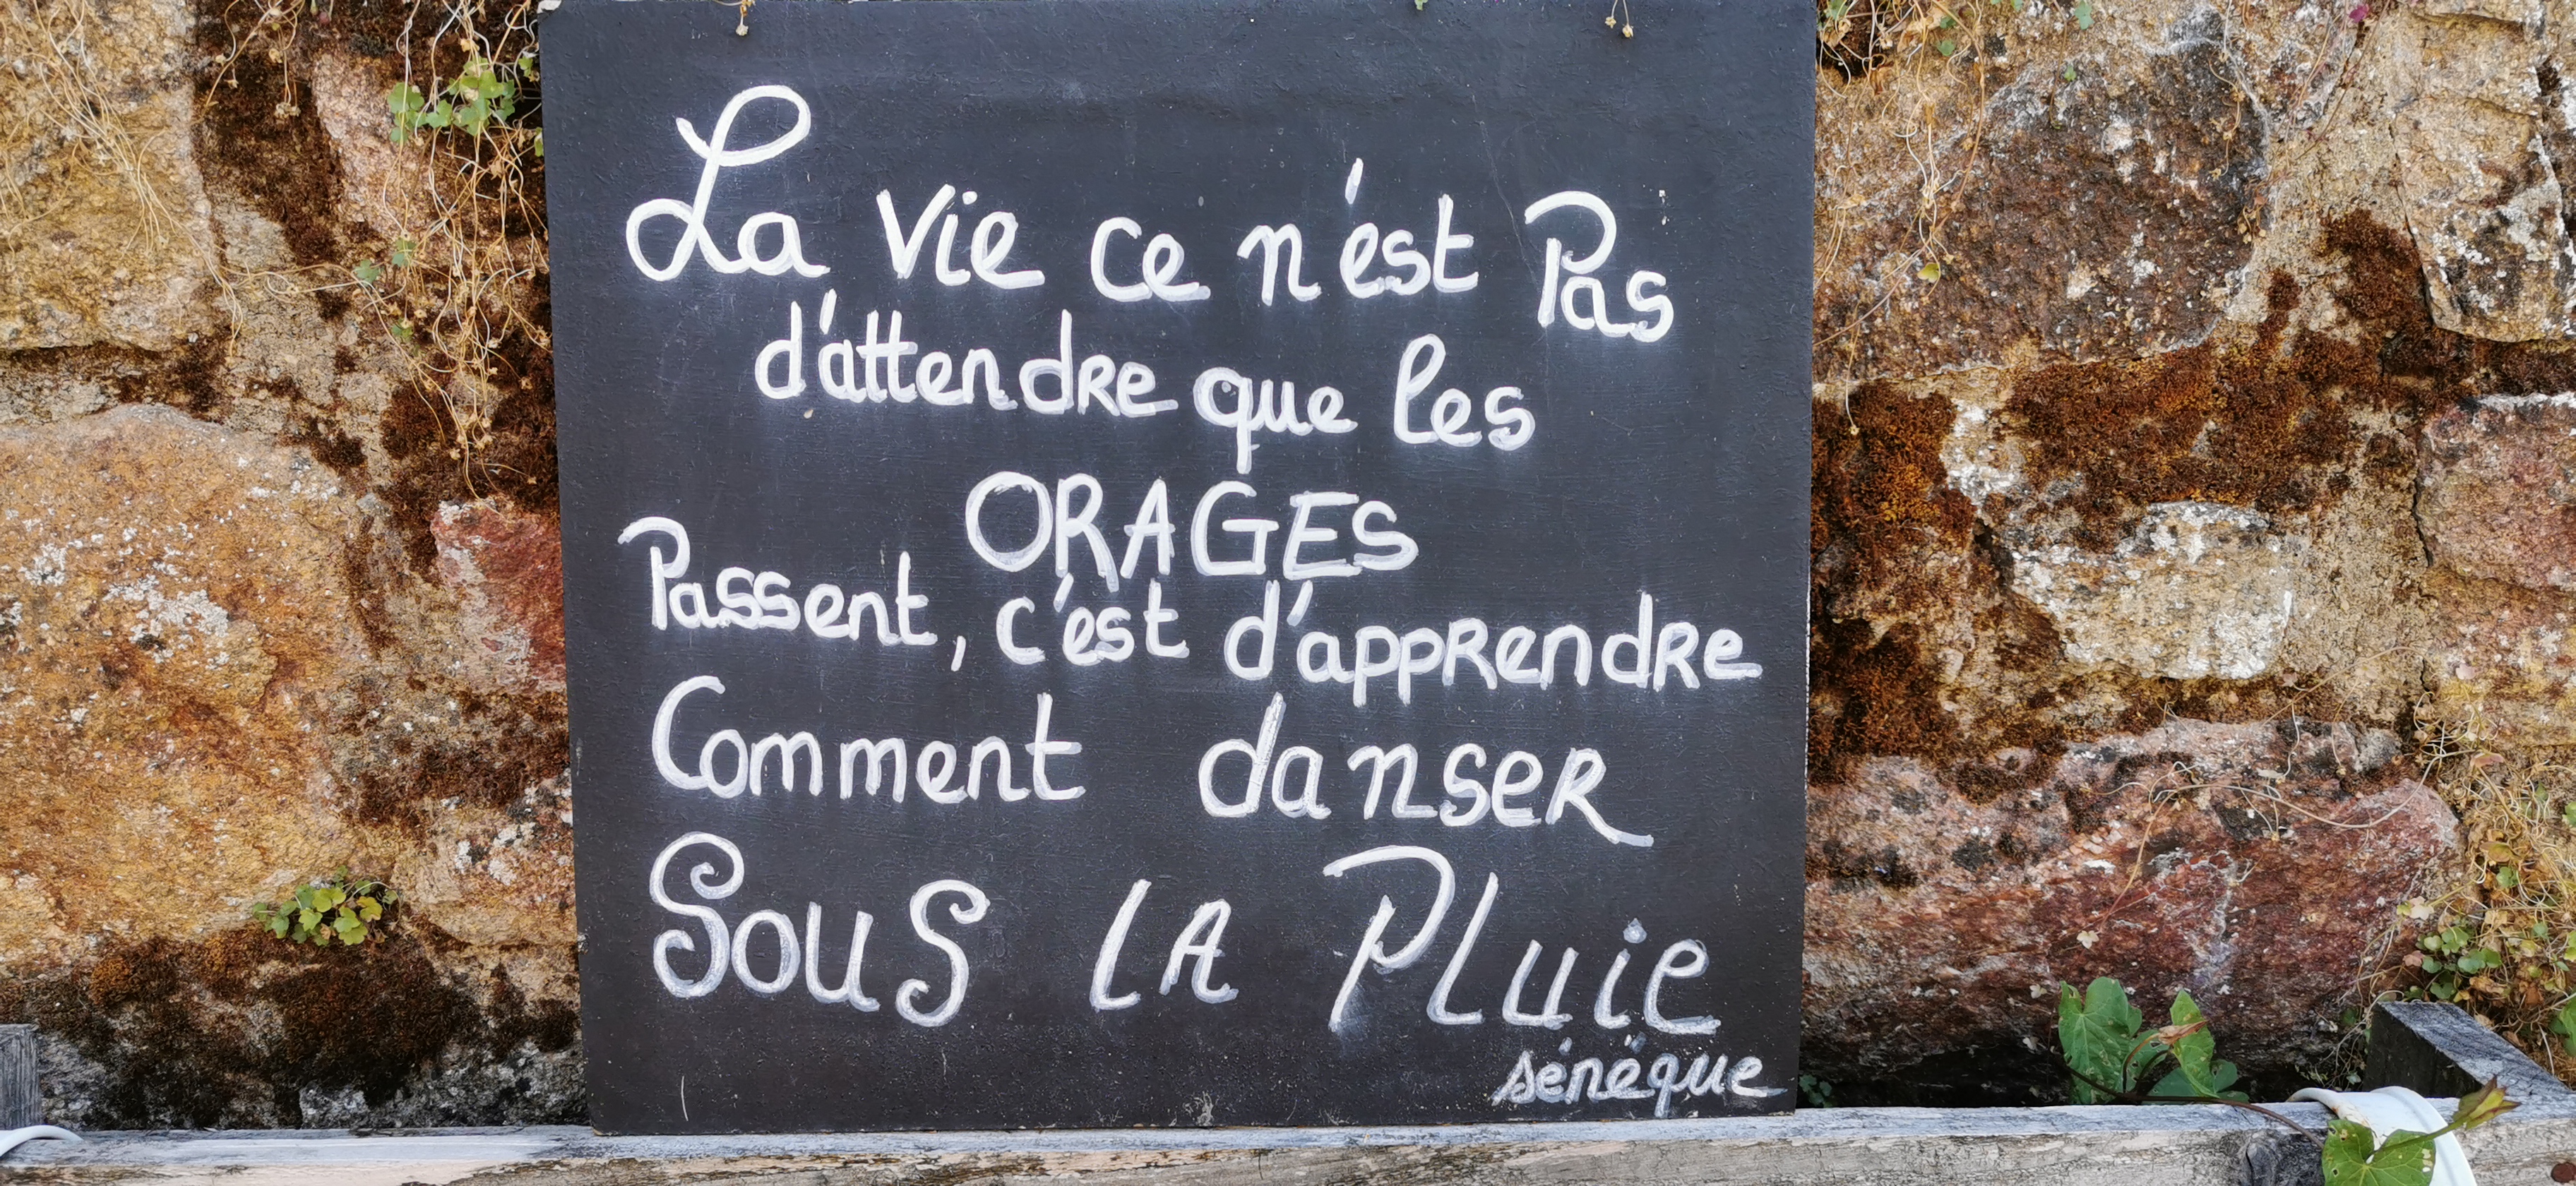 La vie ce n'est Pas
d'attendre que les
ORAGES
Passent, c'est d'apprendre
Comment danser
Sous LA Pluie
sénëque